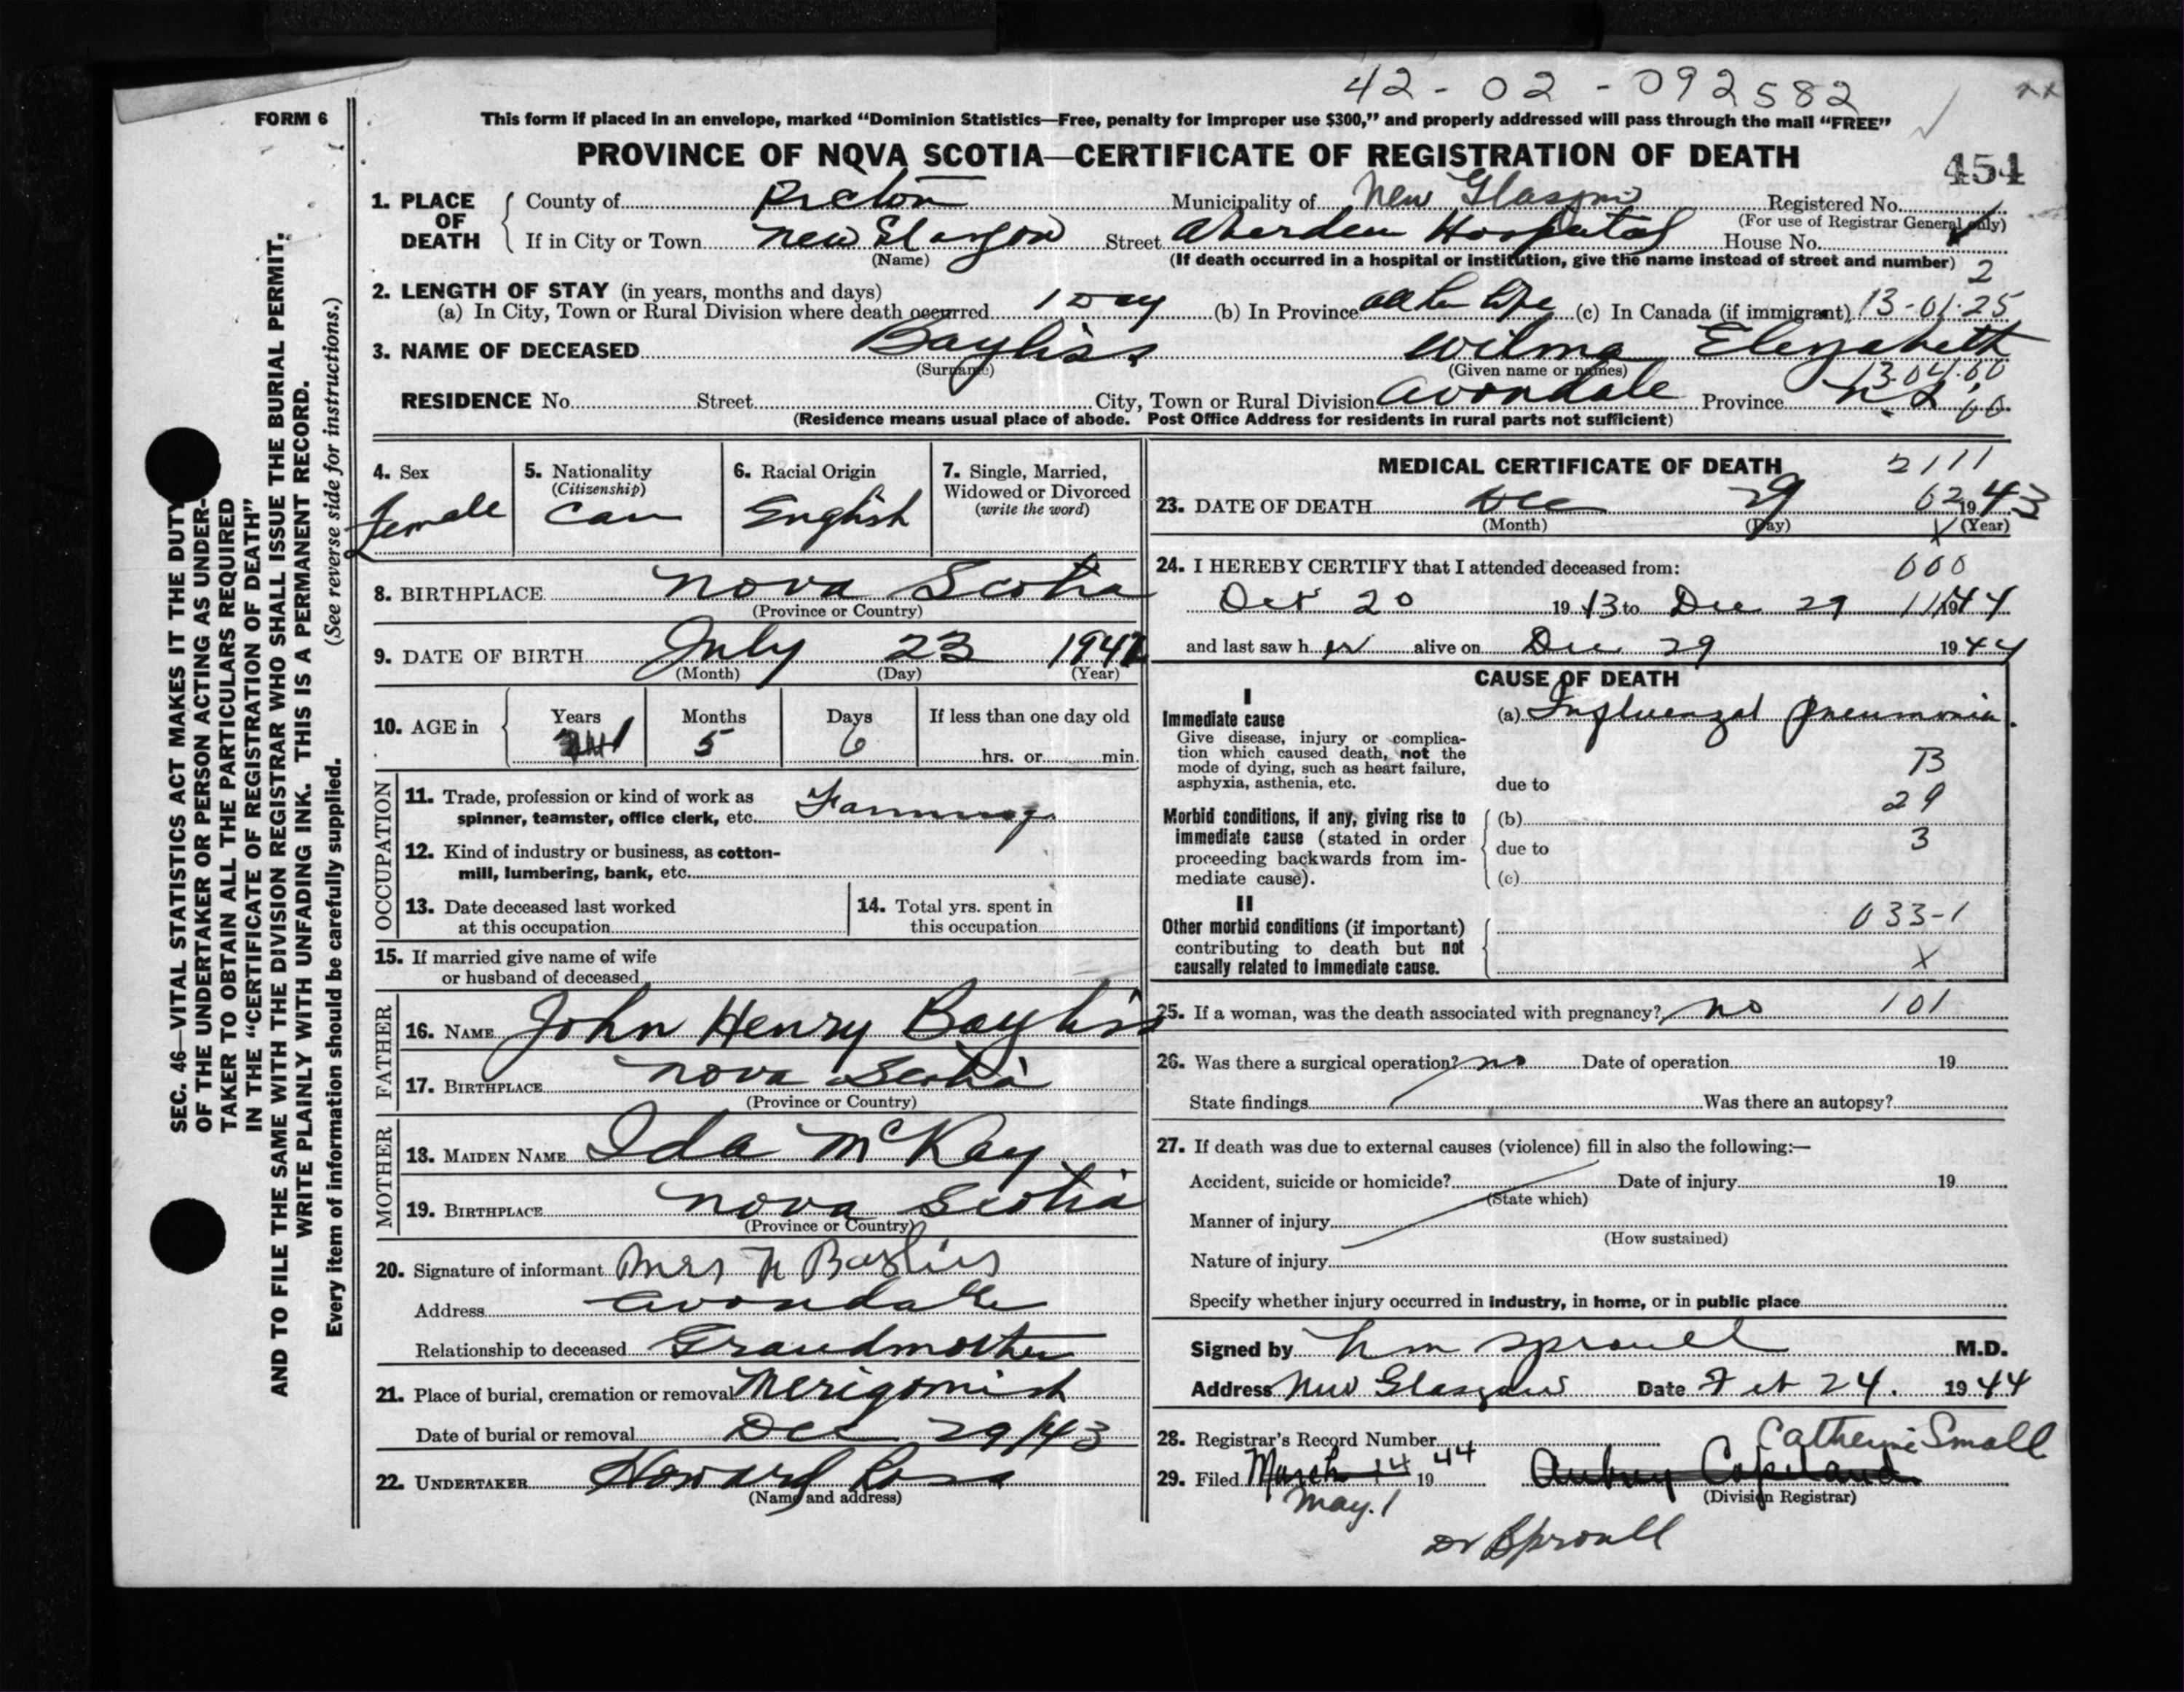 42-02-092582
FORM 6
This form if placed in an envelope, marked "Dominion Statistics—Free, penalty for improper use $300," and properly addressed will pass through the mail "FREE"
PROVINCE OF NOVA SCOTIA—CERTIFICATE OF REGISTRATION OF DEATH
454
1. PLACE OF DEATH
County of Pictou Municipality of New Glasgow Registered No.
(For use of Registrar General only)
If in City or Town New Glasgow Street Aberdeen Hospital House No.
(Name) (If death occurred in a hospital or institution, give the name instead of street and number)
2
2. LENGTH OF STAY (in years, months and days)
(a) In City, Town or Rural Division where death occurred 1 Day (b) In Province all her life (c) In Canada (if immigrant) 13-01-25
3. NAME OF DECEASED Bayliss Wilma Elizabeth
(Surname) (Given name or names)
13.04.00
RESIDENCE No. Street City, Town or Rural Division Avondale Province N.S.
(Residence means usual place of abode. Post Office Address for residents in rural parts not sufficient)
4. Sex
Female
5. Nationality
(Citizenship)
Can
6. Racial Origin
English
7. Single, Married, Widowed or Divorced
(write the word)
8. BIRTHPLACE Nova Scotia
(Province or Country)
9. DATE OF BIRTH July 23 1942
(Month) (Day) (Year)
10. AGE in Years Months Days If less than one day old
1 5 6 hrs. or min.
OCCUPATION
11. Trade, profession or kind of work as
spinner, teamster, office clerk, etc. Farming
12. Kind of industry or business, as cotton-
mill, lumbering, bank, etc.
13. Date deceased last worked
at this occupation
14. Total yrs. spent in
this occupation
15. If married give name of wife
or husband of deceased
FATHER
16. NAME John Henry Bayliss
17. BIRTHPLACE Nova Scotia
(Province or Country)
MOTHER
18. MAIDEN NAME Ida McKay
19. BIRTHPLACE Nova Scotia
(Province or Country)
20. Signature of informant Mrs H Bayliss
Address Avondale
Relationship to deceased Grandmother
21. Place of burial, cremation or removal Merigomish
Date of burial or removal Dec 29/43
22. UNDERTAKER Howard Ross
(Name and address)
MEDICAL CERTIFICATE OF DEATH
2111
23. DATE OF DEATH Dec 29 1943
(Month) (Day) (Year)
62
X
24. I HEREBY CERTIFY that I attended deceased from:
000
Oct 20 1943 to Dec 29 1944
and last saw her alive on Dec 29 1944
CAUSE OF DEATH
I
Immediate cause
Give disease, injury or complica-
tion which caused death, not the
mode of dying, such as heart failure,
asphyxia, asthenia, etc.
(a) Influenzal pneumonia.
B
due to
29
Morbid conditions, if any, giving rise to
immediate cause (stated in order
proceeding backwards from im-
mediate cause).
(b)
3
due to
(c)
II
Other morbid conditions (if important)
contributing to death but not
causally related to immediate cause.
033-1
X
25. If a woman, was the death associated with pregnancy? no 101
26. Was there a surgical operation? no Date of operation 19
State findings Was there an autopsy?
27. If death was due to external causes (violence) fill in also the following:—
Accident, suicide or homicide? Date of injury 19
(State which)
Manner of injury
(How sustained)
Nature of injury
Specify whether injury occurred in industry, in home, or in public place
Signed by H M Sproull M.D.
Address New Glasgow Date Feb 24. 1944
28. Registrar's Record Number
Catherine Small
29. Filed March 14 1944 Aubrey Copeland
May. 1 (Division Registrar)
Dr Sproull
SEC. 46—VITAL STATISTICS ACT MAKES IT THE DUTY
OF THE UNDERTAKER OR PERSON ACTING AS UNDER-
TAKER TO OBTAIN ALL THE PARTICULARS REQUIRED
IN THE "CERTIFICATE OF REGISTRATION OF DEATH"
AND TO FILE THE SAME WITH THE DIVISION REGISTRAR WHO SHALL ISSUE THE BURIAL PERMIT.
WRITE PLAINLY WITH UNFADING INK. THIS IS A PERMANENT RECORD.
Every item of information should be carefully supplied. (See reverse side for instructions.)